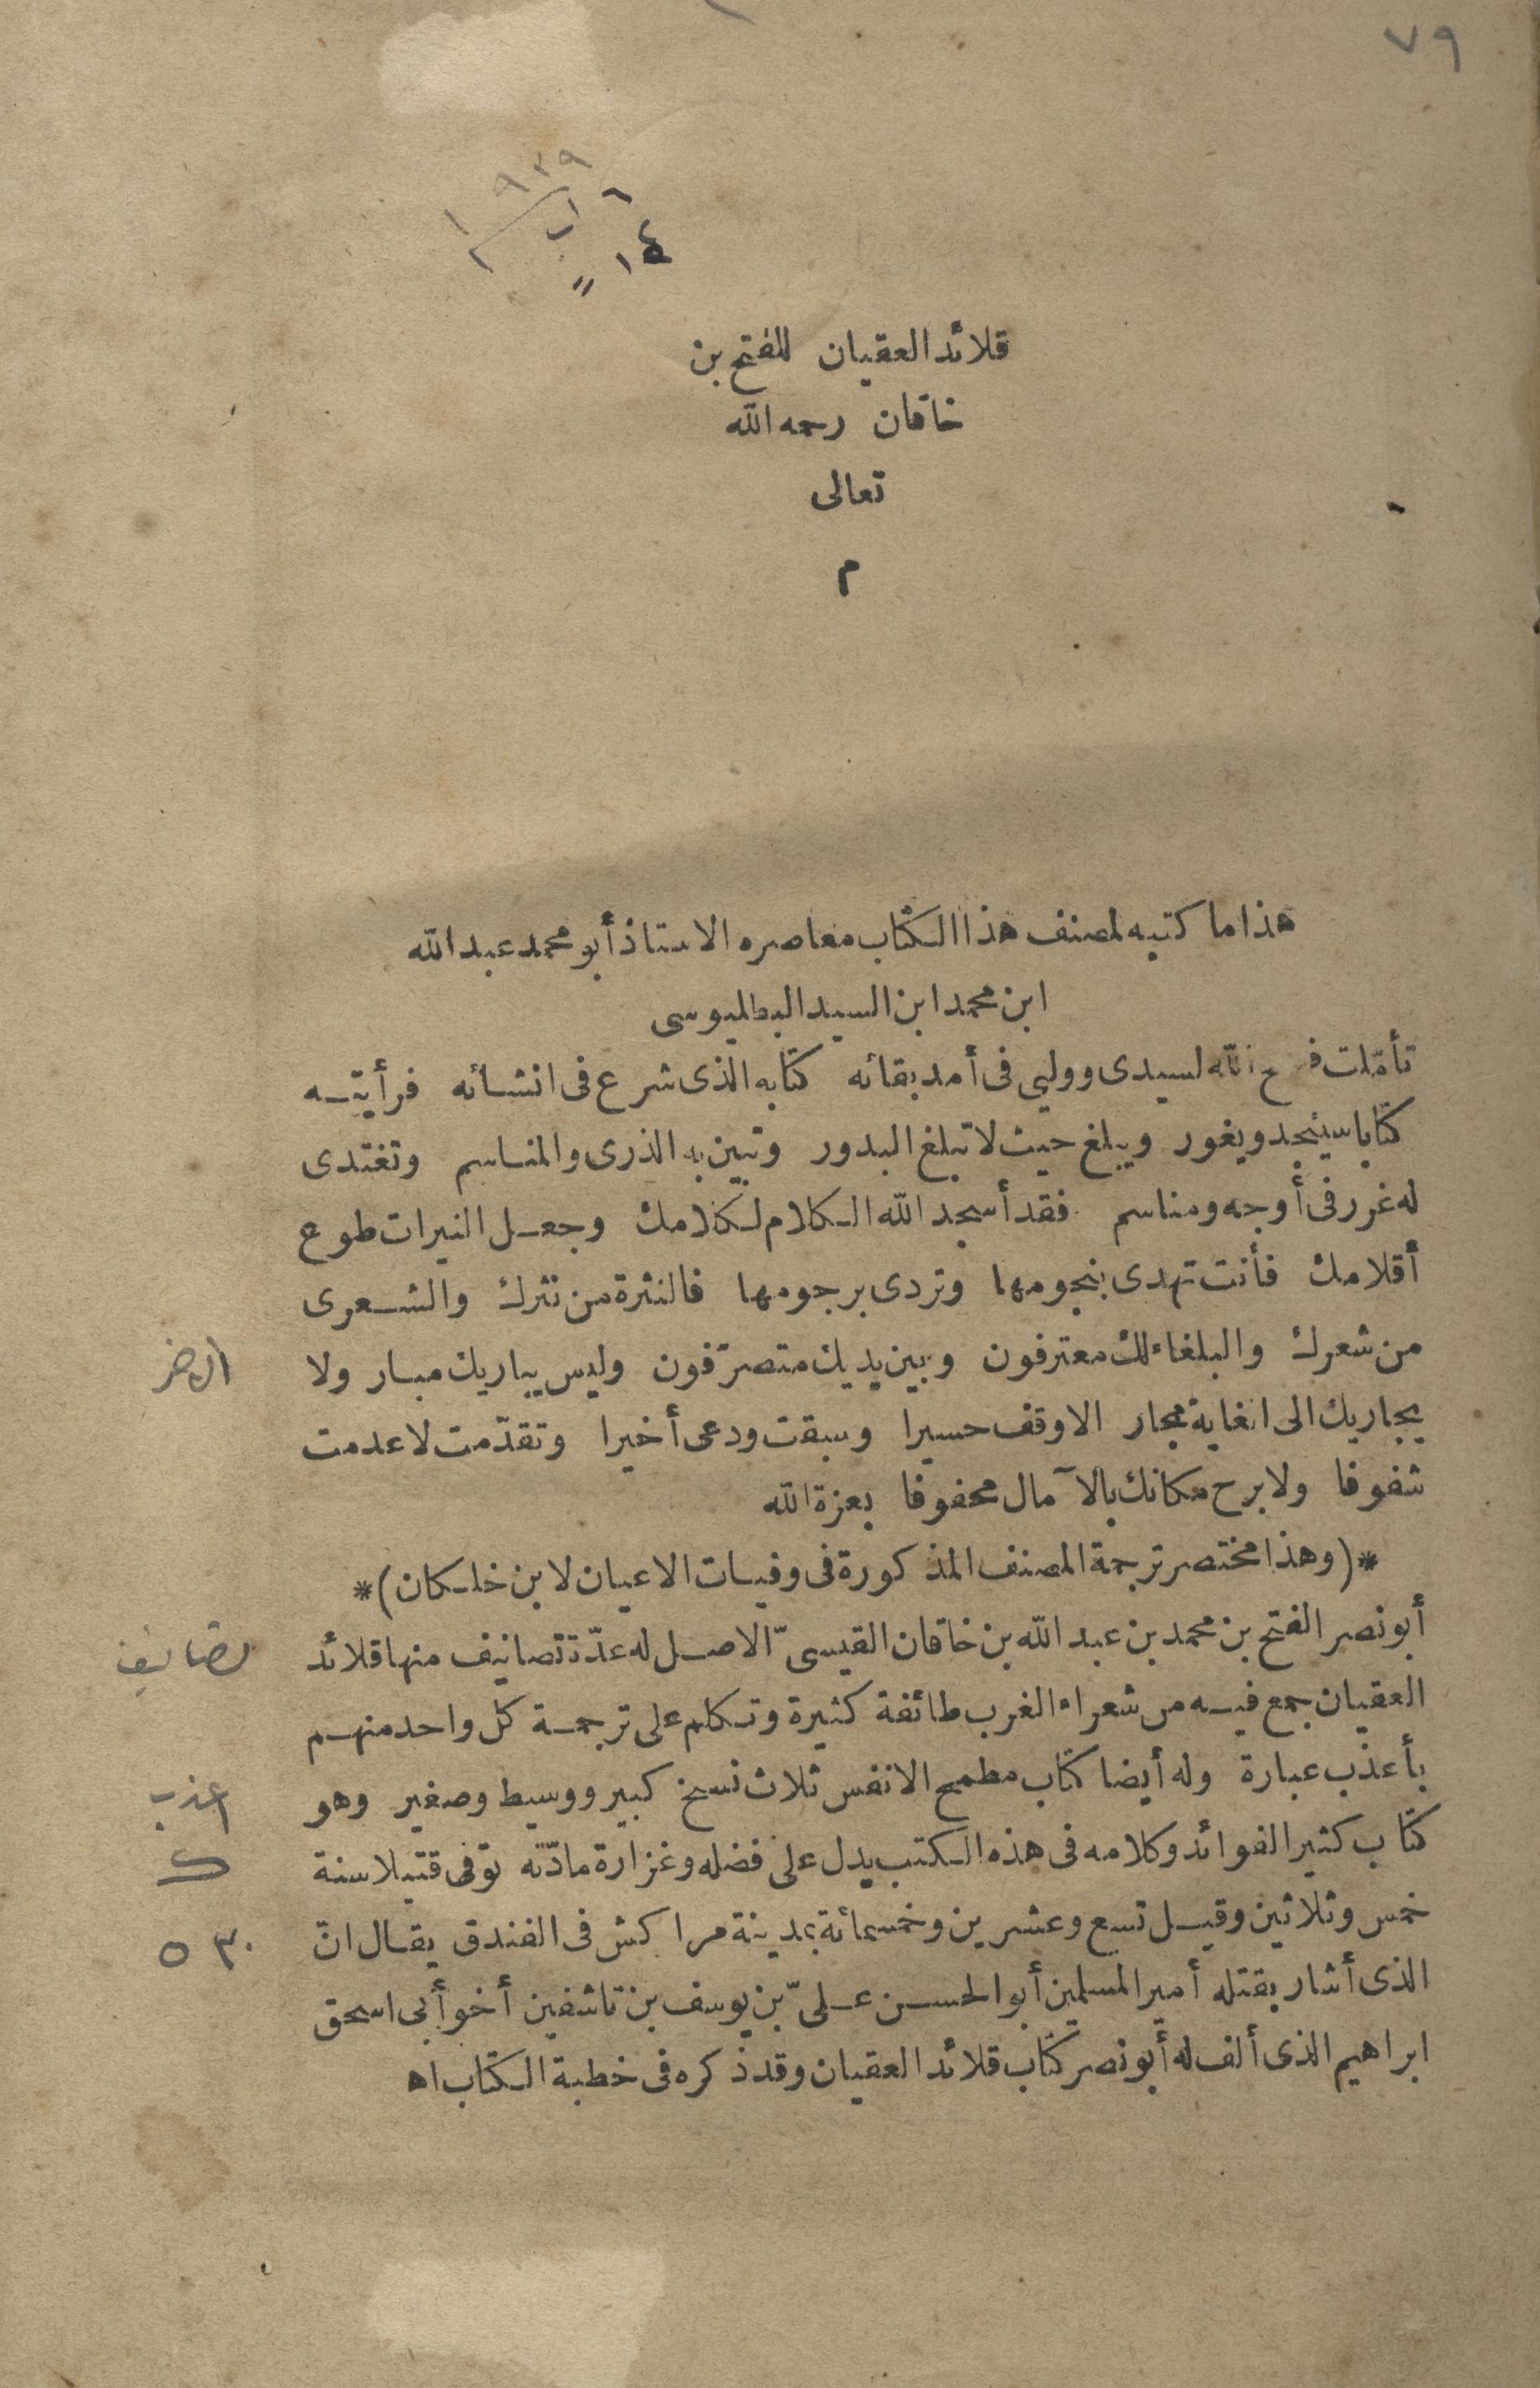 ٧٩
١٩٣٩
١٤
قلائد العقيان للفتح بن
خاقان رحمه الله
تعالى
م
هذا ما كتبه لمصنف هذا الكتاب معاصره الاستاذ أبو محمد عبد الله
ابن محمد ابن السيد البطليوسى
تأمّلت فسح الله لسيدى ووليى فى أمد بقائه كتابه الذى شرع فى انشائه فرأيته
كتابا سينجد ويغور ويبلغ حيث لا تبلغ البدور وتبين به الذرى والمناسم وتغتدى
له غرر فى أوجه ومناسم فقد أسجد الله الكلام لكلامك وجعل النيرات طوع
أقلامك فأنت تهدى بنجومها وتردى برجومها فالنثرة من نثرك والشعرى
من شعرك والبلغاء لك معترفون وبين يديك متصرّفون وليس يباريك مبار ولا
يجاريك الى الغاية مجار الا وقف حسيرا وسبقت ودعى أخيرا وتقدّمت لا عدمت
شفوفا ولا برح مكانك بالآمال محفوفا بعزة الله
*(وهذا مختصر ترجمة المصنف المذكورة فى وفيات الاعيان لابن خلكان)*
أبو نصر الفتح بن محمد بن عبد الله بن خاقان القيسىّ الاصل له عدّة تصانيف منها قلائد
تصانيف
العقيان جمع فيه من شعراء الغرب طائفة كثيرة وتكلم على ترجمة كل واحد منهم
بأعذب عبارة وله أيضا كتاب مطمح الانفس ثلاث نسخ كبير ووسيط وصغير وهو
اعذب
كتاب كثير الفوائد وكلامه فى هذه الكتب يدل على فضله وغزارة مادّته توّفى قتيلا سنة
خمس وثلاثين وقيل تسع وعشرين وخمسمائة بمدينة مراكش فى الفندق يقال انّ
٥٣٠
الذى أشار بقتله أمير المسلمين أبو الحسن علىّ بن يوسف بن تاشفين أخو أبى اسحق
ابراهيم الذى ألف له أبو نصر كتاب قلائد العقيان وقد ذكره فى خطبة الكتاب اه